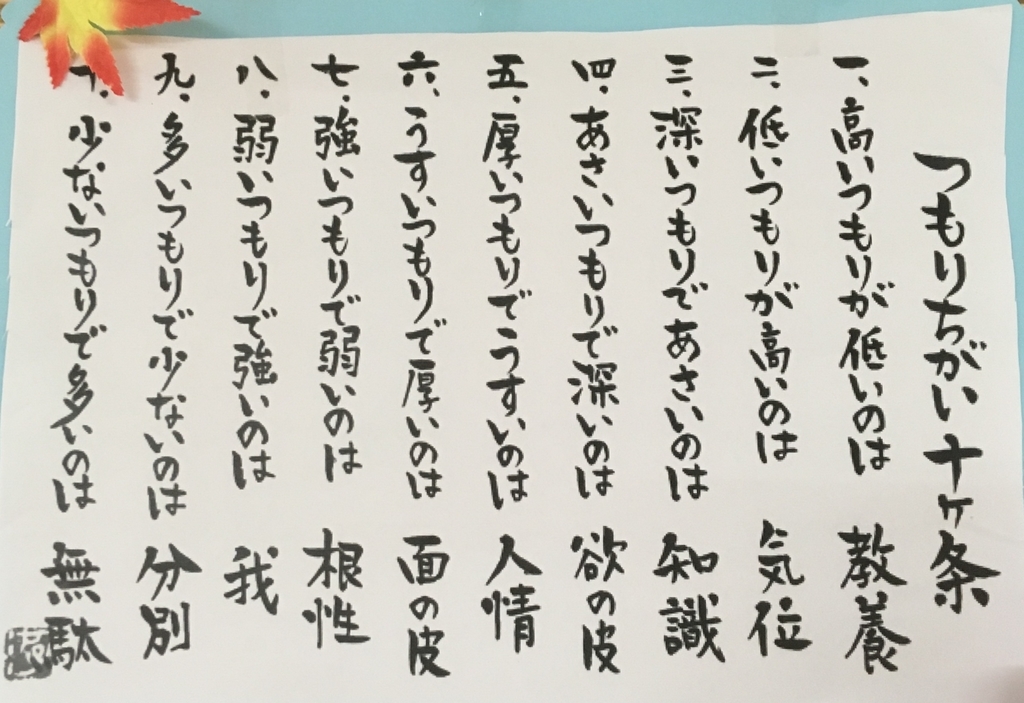 つもりちがい十ヶ条
一、高いつもりが低いのは 教養
二、低いつもりが高いのは 気位
三、深いつもりであさいのは 知識
四、あさいつもりで深いのは 欲の皮
五、厚いつもりでうすいのは 人情
六、うすいつもりで厚いのは 面の皮
七、強いつもりで弱いのは 根性
八、弱いつもりで強いのは 我
九、多いつもりで少ないのは 分別
十、少ないつもりで多いのは 無駄